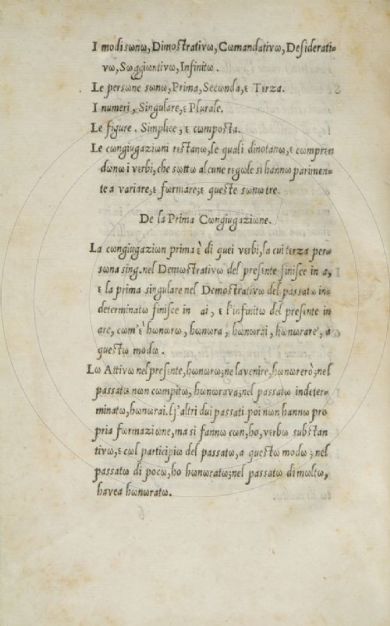 I modi sωnω, Dimoſtrativω, Cωmandativω, Deſiderati-
vω, Sωggiuntivω, Infinitω.
Le perſωne sωnω, Prima, Secωnda, ε Tεrza.
I numeri, Singulare, ε Plurale.
Le figure. Simplice, ε cωmpoſta.
Le cωngiugaziωni reſtanω, le quali dinotanω, ε cωmpren
dωnω i verbi, che sωttω alcune regωle si hannω parimen-
te a variare, ε fωrmare; ε queſte sωnω tre.
De la Prima Cωngiugaziωne.
La cωngiugaziωn prima ὲ di quei verbi, la cui terza per-
sωna sing. nel Demoſtrativω del preſente finiſce in a,
ε la prima singulare nel Demoſtrativω del paſſatω in-
determinatω finiſce in ai, ε l'infinitω del preſente in
are, cωm'ὲ hωnωrω, hωnωra, hωnωrai, hωnωrare, a
queſtω modω.
Lω Attivω nel preſente, hωnωrω; ne lavenire, hωnωrerò; nel
paſſatω nωn cωmpitω, hωnωrava; nel paſſatω indeter-
minatω, hωnωrai. lj'altri dui paſſati poi nωn hannω pro
pria fωrmaziωne, ma si fannω cωn, ho, verbω subſtan
tivω, ε cωl participiω del paſſatω, a queſtω modω; nel
paſſatω di pocω, ho hωnωratω; nel paſſatω di mωltω,
havea hωnωratω.